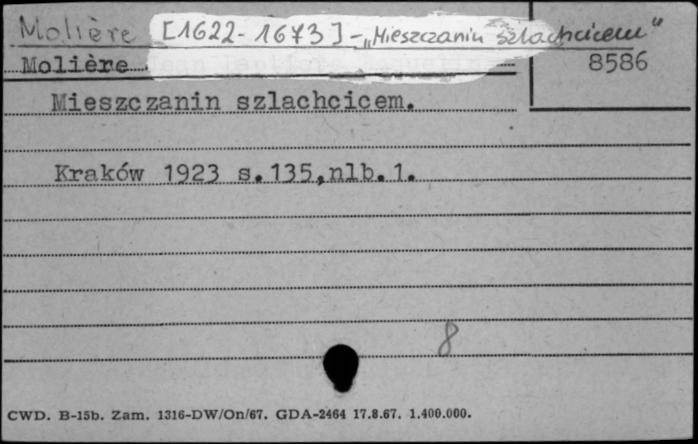 Molière [1622-1673] - „Mieszczanin szlachcicem"
Molière
8586
Mieszczanin szlachcicem.
Kraków 1923 s.135,nlb.1.
8
CWD. B-15b. Zam. 1316-DW/On/67. GDA-2464 17.8.67. 1.400.000.